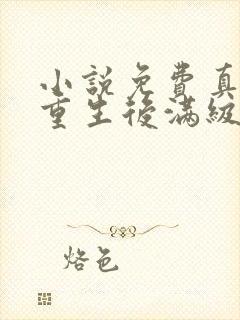 小說免費真
重生後滿級
烙色